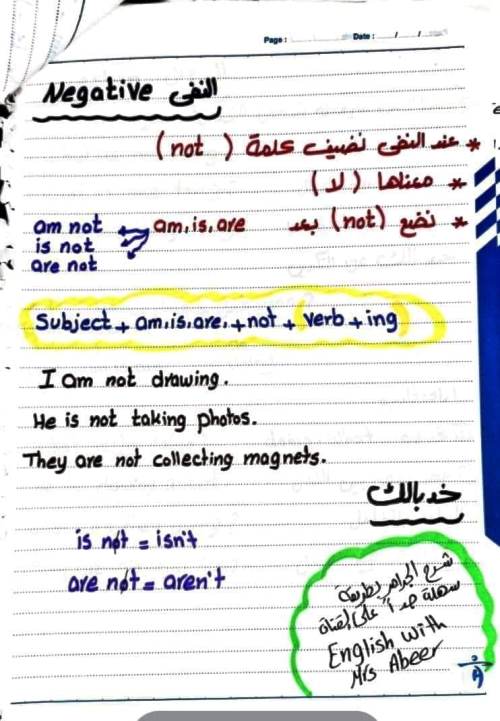 Page : Date : / /
Negative النفى
* عند النفى نضيف كلمة ( not )
* معناها ( لا )
* نضع (not) بعد am, is, are
am not
is not
are not
Subject + am, is, are, + not + verb + ing
I am not drawing.
He is not taking photos.
They are not collecting magnets.
خد بالك
is not = isn't
are not = aren't
شرح الجرامر بطريقة
سهلة جداً على القناة
English with
Mrs Abeer